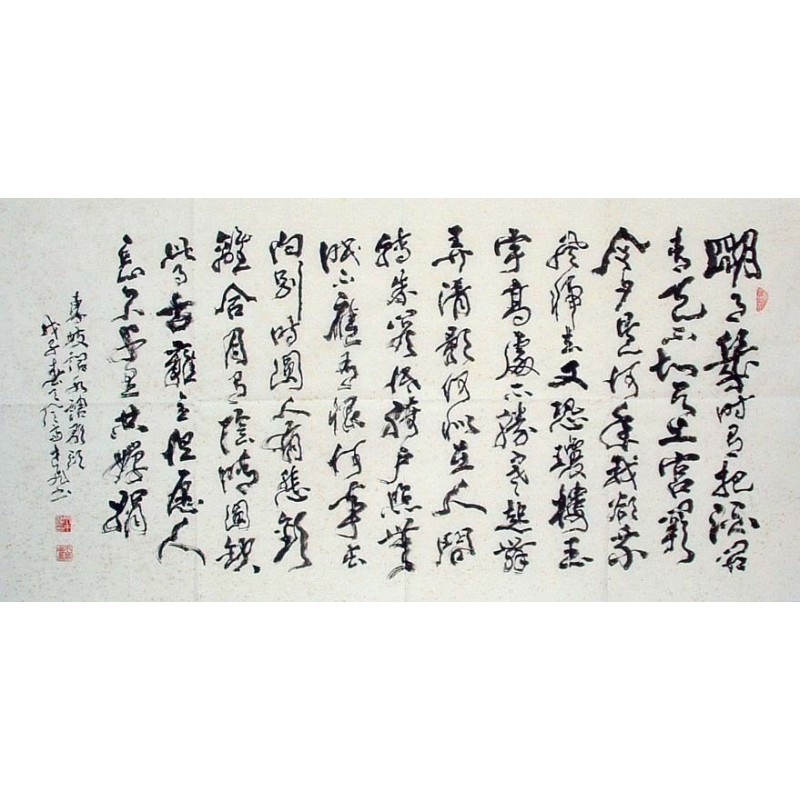 明月幾時有把酒问
青天不知天上宫闕
今夕是何年我欲乘
风歸去又恐瓊樓玉
宇高處不勝寒起舞
弄清影何似在人間
轉朱閣低綺户照無
眠不應有恨何事长
向别時圓人有悲歡
離合月有陰晴圓缺
此事古難全但愿人
長久千里共嬋娟
東坡詞水調歌頭
戊子春书